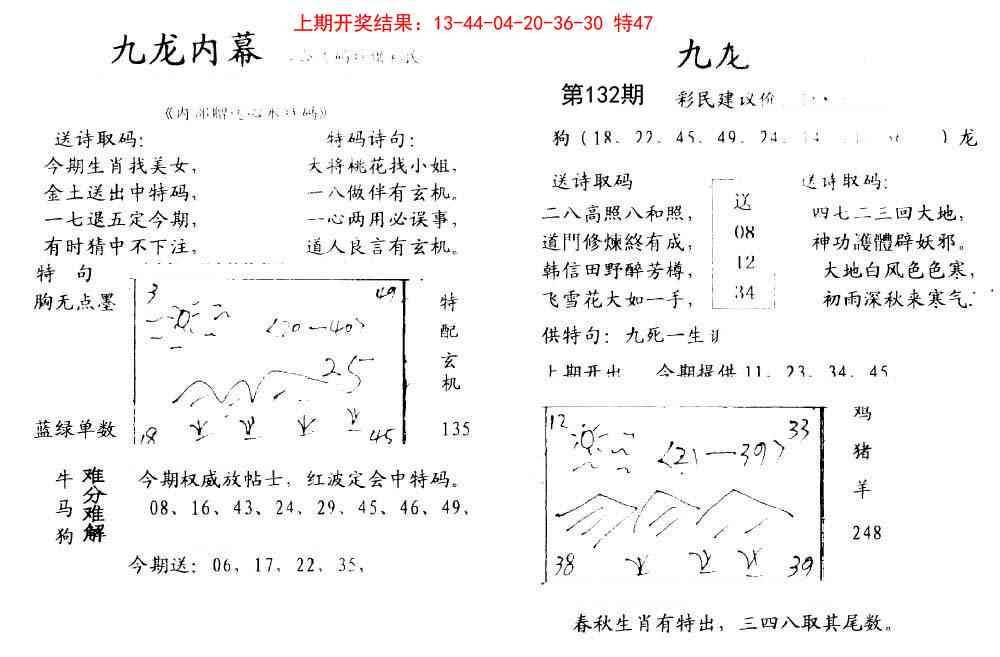 上期开奖结果：13-44-04-20-36-30 特47
九龙内幕
送诗取码:
今期生肖找美女，
金土送出中特码，
一七退五定今期，
有时猜中不下注，
特码诗句:
大将桃花找小姐，
一八做伴有玄机。
一心两用必误事，
道人良言有玄机。
特 句
胸无点墨
蓝绿单数
3
49
<20—40>
25
18
45
特
配
玄
机
135
牛
马
狗
难分难解
今期权威放帖士，红波定会中特码。
08、16、43、24、29、45、46、49、
今期送：06、17、22、35、
九龙
第132期 彩民建议价
狗（18、22、45、49、24、 ）龙
送诗取码
二八高照八和照，
道門修煉終有成，
韩信田野醉芳樽，
飞雪花大如一手，
送
08
12
34
送诗取码:
四七二三回大地，
神功護體辟妖邪。
大地白风色色寒，
初雨深秋来寒气.
供特句：九死一生
上期开出 今期提供 11、23、34、45
12
33
<21—39>
38
39
鸡
猪
羊
248
春秋生肖有特出，三四八取其尾数。